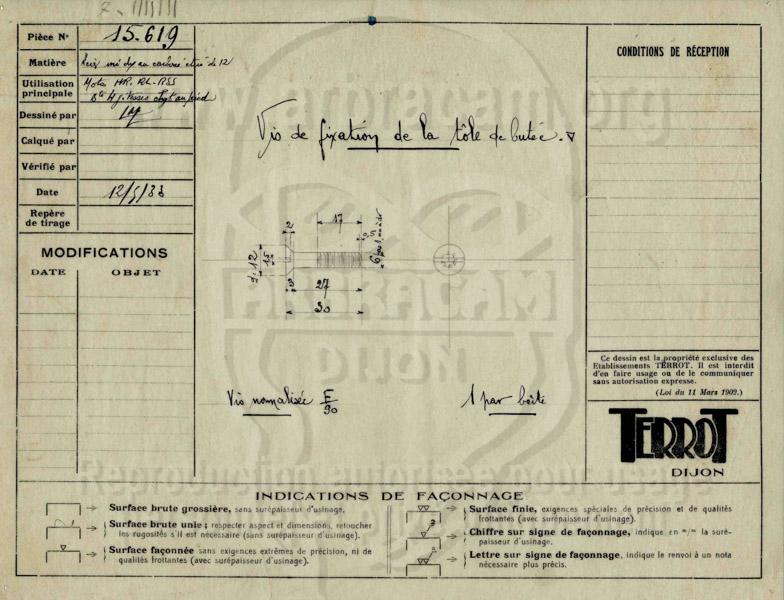 Pièce N° 15.619
Matière
Utilisation
principale
Dessiné par
Calqué par
Vérifié par
Date 12/5/33
Repère
de tirage
MODIFICATIONS
DATE OBJET
www.arbracam.org
Vis de fixation de la tôle de butée.
17
2
27
30
15
ARBRACAM
DIJON
Vis normalisée E/90
1 par boîte
CONDITIONS DE RÉCEPTION
Ce dessin est la propriété exclusive des
Etablissements TERROT. Il est interdit
d'en faire usage ou de le communiquer
sans autorisation expresse.
(Loi du 11 Mars 1902.)
TERROT
DIJON
Reproduction autorisée pour usage
INDICATIONS DE FAÇONNAGE
Surface brute grossière, sans surépaisseur d'usinage.
Surface brute unie ; respecter aspect et dimensions, retoucher
les rugosités s'il est nécessaire (sans surépaisseur d'usinage).
Surface façonnée sans exigences extrêmes de précision, ni de
qualités frottantes (avec surépaisseur d'usinage).
Surface finie, exigences spéciales de précision et de qualités
frottantes (avec surépaisseur d'usinage).
Chiffre sur signe de façonnage, indique en m/m la suré-
paisseur d'usinage.
Lettre sur signe de façonnage, indique le renvoi à un nota
nécessaire plus précis.